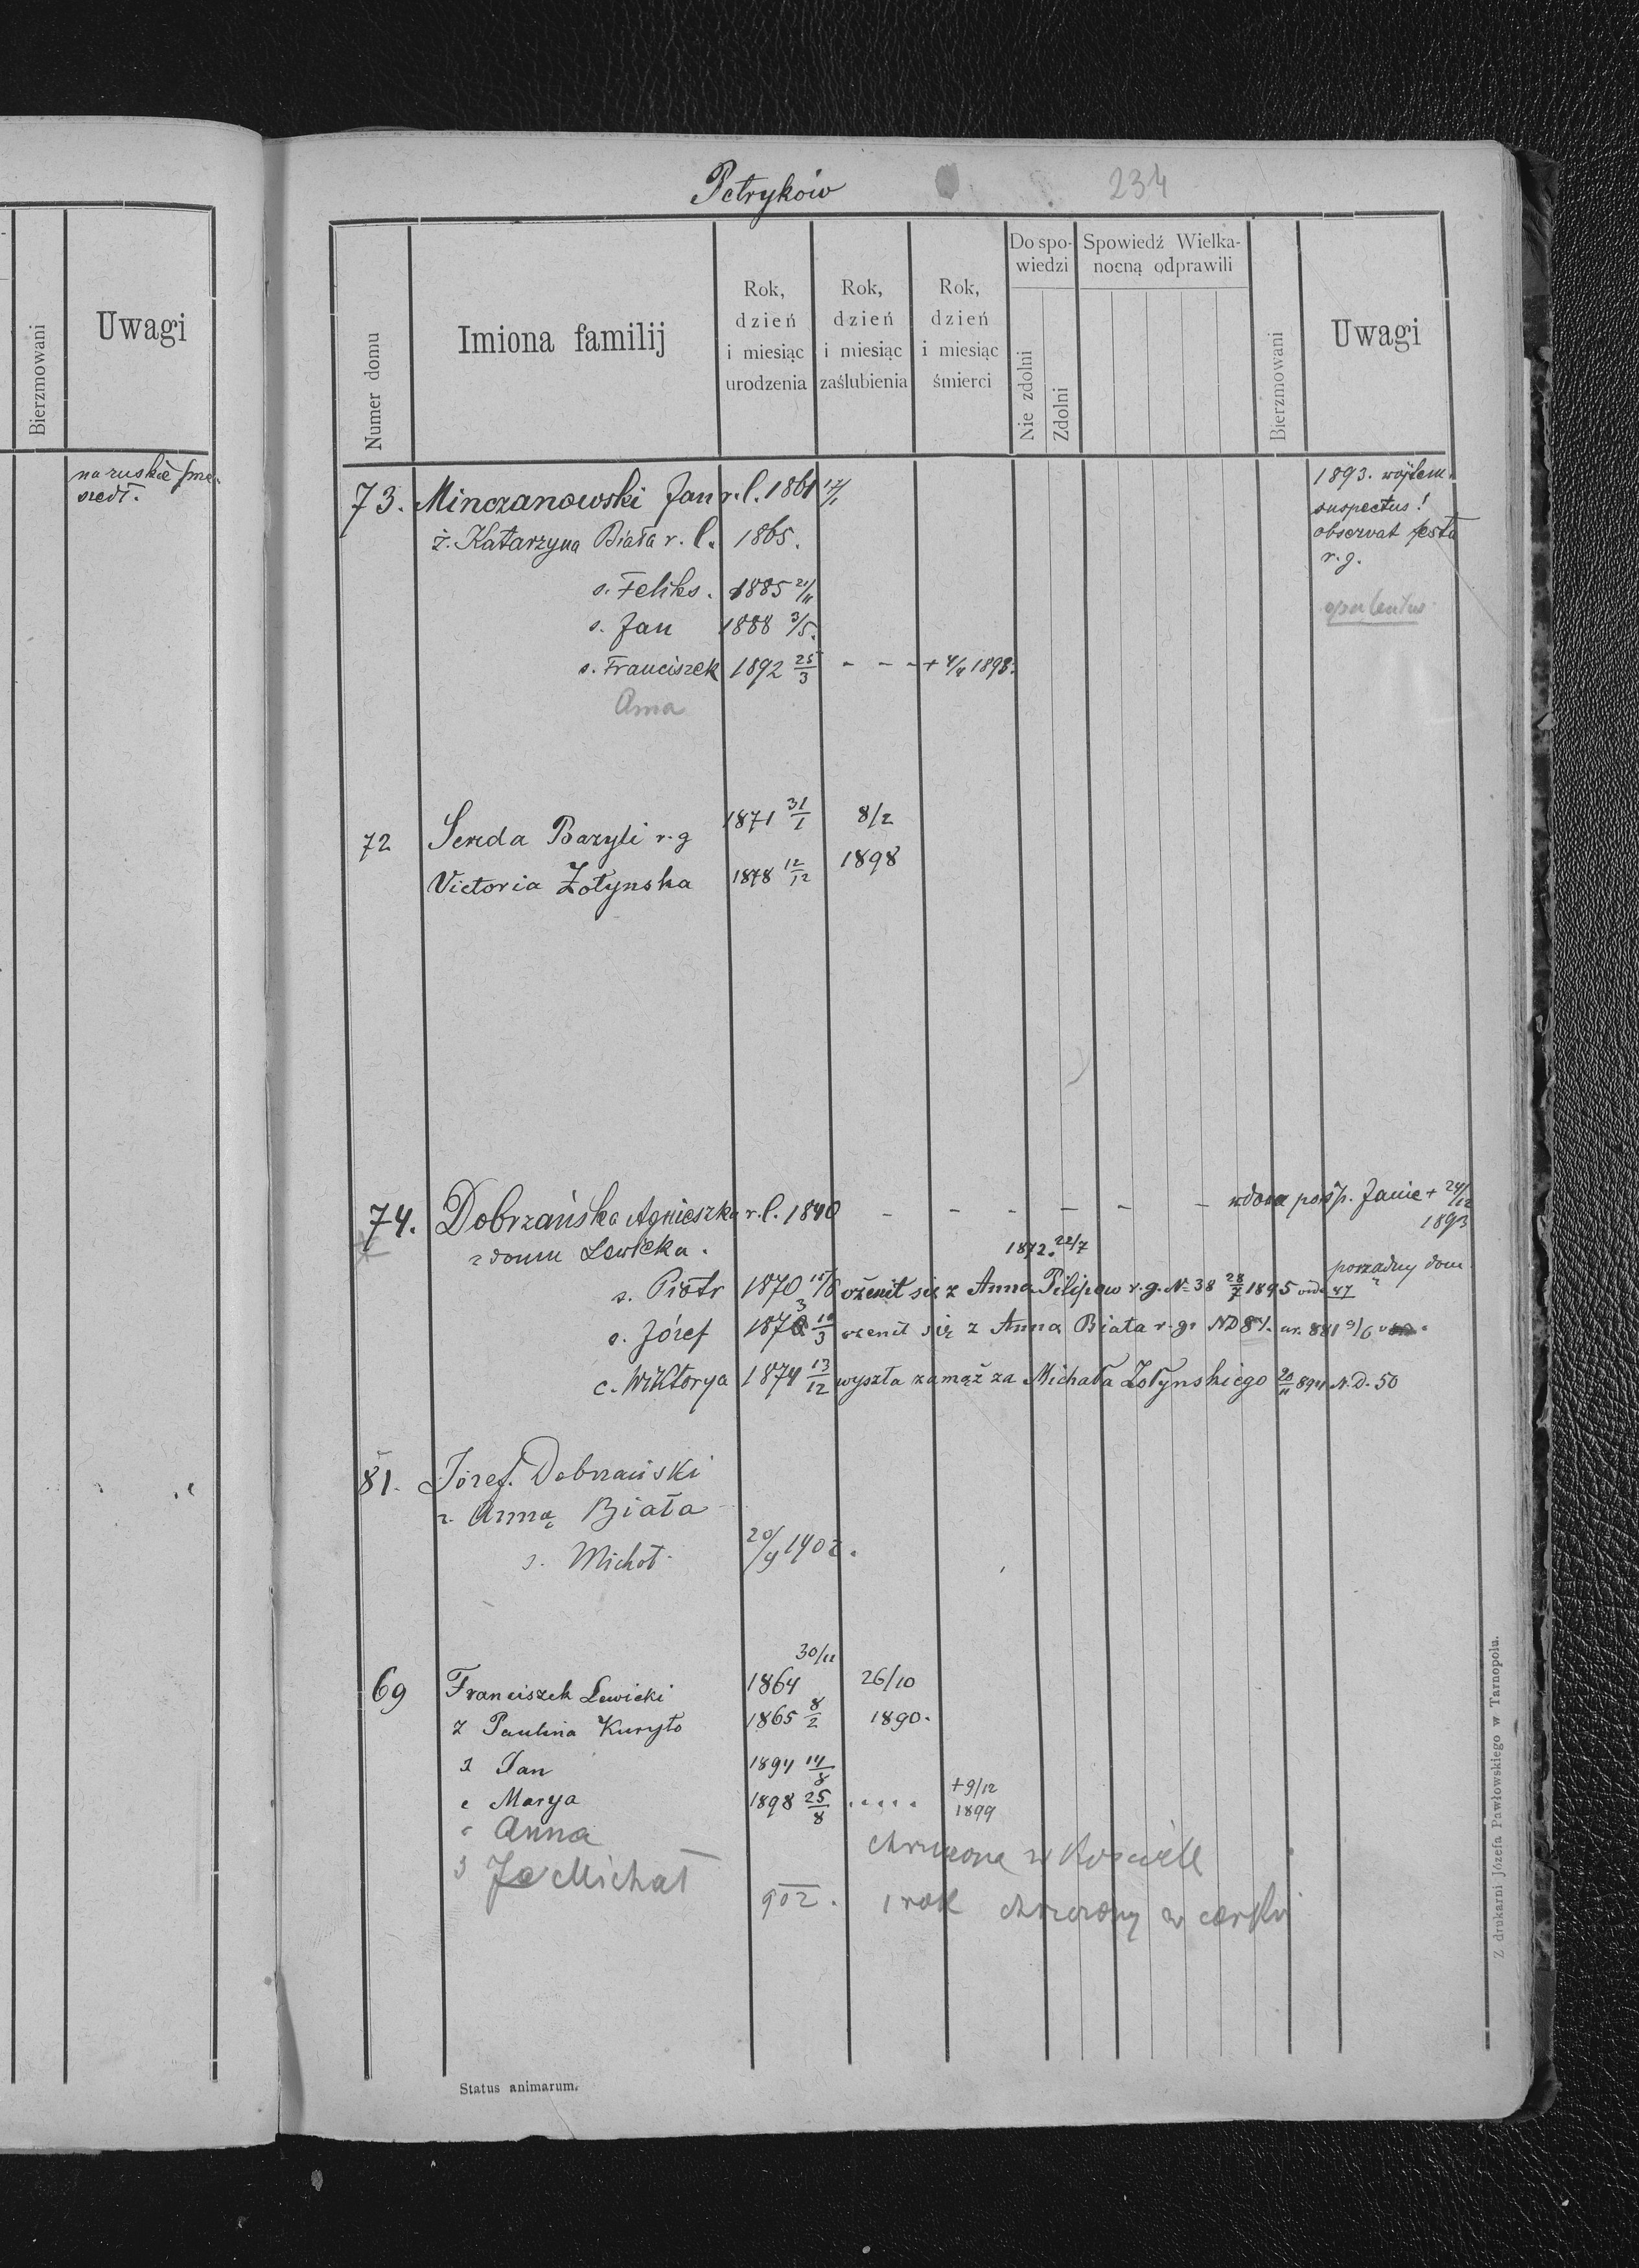 Bierzmowani
Uwagi
na ruskie
szedł.
Petryków
234
Numer domu
Imiona familij
Rok,
dzień
i miesiąc
urodzenia
Rok,
dzień
i miesiąc
zaślubienia
Rok,
dzień
i miesiąc
śmierci
Do spo-
wiedzi
Nie zdolni
Zdolni
Spowiedź Wielka-
nocną odprawili
Bierzmowani
Uwagi
73. Minczanowski Jan r.l. 1861 1893. wójtem.
suspectus!
ż. Katarzyna Biała r. l. 1865. observat festa
r. g.
s. Feliks. 1885 21/11
opulentus
s. Jan 1888 3/5.
s. Franciszek 1892 25/3 - - - + 1898.
Anna
72 Sereda Bazyli r. g 1871 31/1 8/2
Victoria Żołynska 1878 12/12 1898
74. Dobrzańska Agnieszka r.l. 1840 - - - - - - wdowa po śp. Janie + 24/12
1893
z domu Lewicka. 1872. 22/7
porządny dom
s. Piotr 1870 15/6 ożenił się z Anna Pilipow r. g. N 38 28/7 1895 47
s. Józef 1873 19/3 ożenił się z Anna Biała r. g. ND 81. ur. 881 9/6
c. Wiktorya 1874 13/12 wyszła zamąż za Michała Żołynskiego 20/11 894 N. D. 50
81. Józef Dobrzański
z. Anną Biała
s. Michał 20/9 1902.
30/11
69 Franciszek Lewicki 1864 26/10
ż Paulina Kuryło 1865 8/2 1890.
s Jan 1894 14/8
c Marya 1898 25/8 ..... + 9/12
1899
c Anna chrzczona w Kościele
s Ja Michał 902. 1 rok chrzczony w cerkwi
Status animarum.
Z drukarni Józefa Pawłowskiego w Tarnopolu.